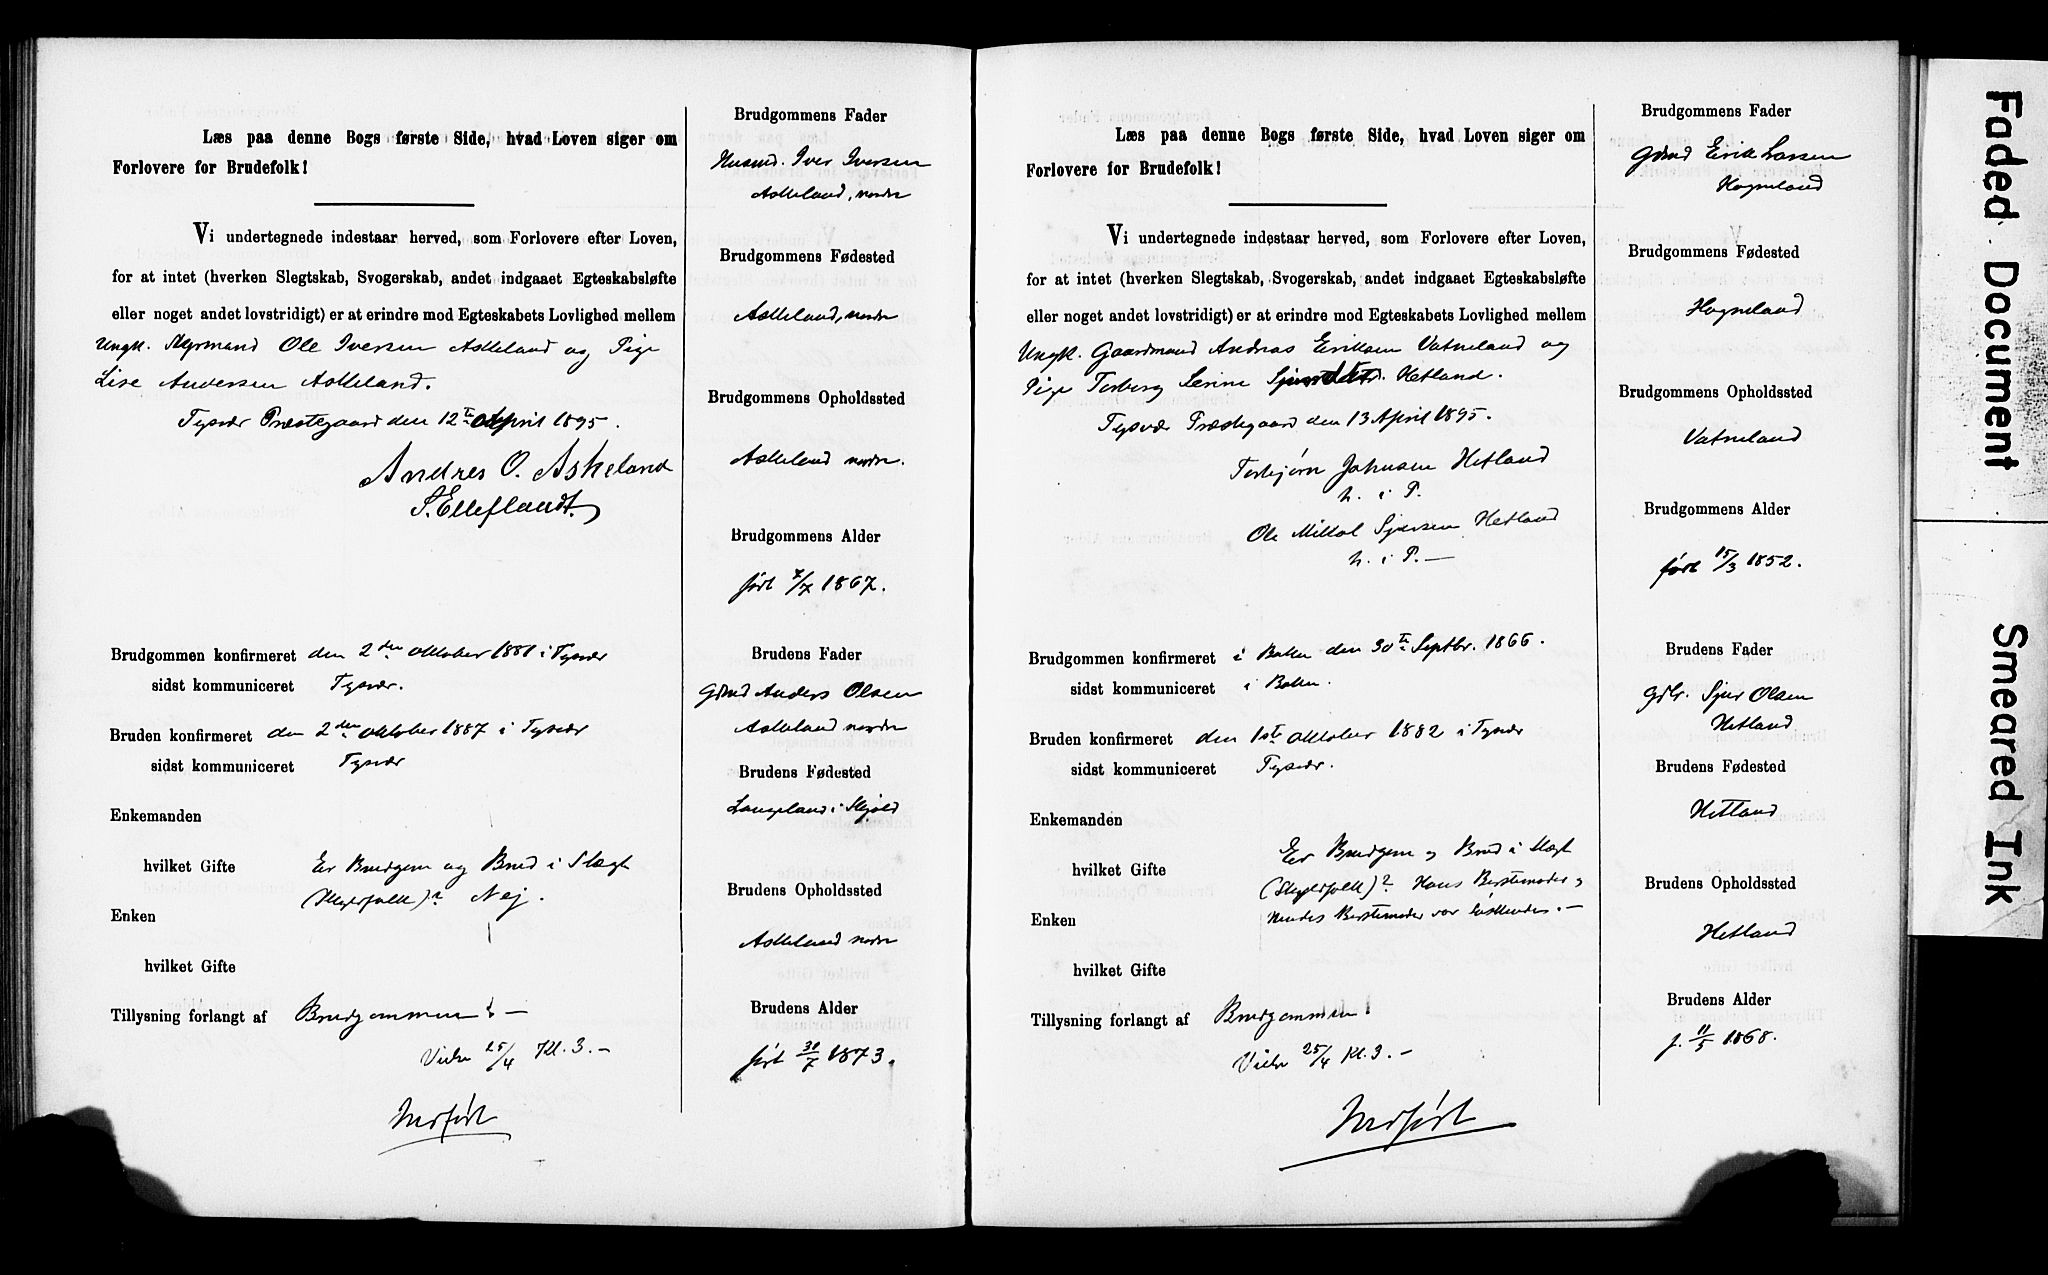 Læs paa denne Bogs første Side, hvad Loven siger om
Forlovere for Brudefolk!
Vi undertegnede indestaar herved, som Forlovere efter Loven,
for at intet (hverken Slegtskab, Svogerskab, andet indgaaet Egteskabsløfte
eller noget andet lovstridigt) er at erindre mod Egteskabets Lovlighed mellem
Ungk. Myrmand Ole Iversen Askeland og Pige
Lise Andersen Askeland.
Tysvær Præstegaard den 12te April 1895.
Andres O. Askeland
S. Elleflandt.
Brudgommen konfirmeret den 2den Oktober 1881 i Tysvær
sidst kommuniceret Tysvær.
Bruden konfirmeret den 2den Oktober 1887 i Tysvær
sidst kommuniceret Tysvær
Enkemanden
hvilket Gifte Er Brudgom og Brud i Slægt
(Skyldfolk)? Nej.
Enken
hvilket Gifte
Tillysning forlangt af Brudgommen! —
Vielse 25/4 Kl. 3. —
Indført
Brudgommens Fader
Husmd. Iver Iversen
Askeland, nordre
Brudgommens Fødested
Askeland, nordre
Brudgommens Opholdssted
Askeland nordre.
Brudgommens Alder
født 7/7 1867.
Brudens Fader
Gbmd Anders Olsen
Askeland nordre
Brudens Fødested
Langeland i Skjold
Brudens Opholdssted
Askeland nordre
Brudens Alder
født 30/7 1873.
Læs paa denne Bogs første Side, hvad Loven siger om
Forlovere for Brudefolk!
Vi undertegnede indestaar herved, som Forlovere efter Loven,
for at intet (hverken Slegtskab, Svogerskab, andet indgaaet Egteskabsløfte
eller noget andet lovstridigt) er at erindre mod Egteskabets Lovlighed mellem
Ungk. Gaardmand Andras Eriksen Vatneland og
Pige Torberg Serine Sjursdatr. Hetland.
Tysvær Præstegaard den 13 April 1895.
Torbjørn Johnsen Hetland
h. i P.
Ole Mikkal Sjursen Hetland
h. i P. —
Brudgommen konfirmeret i Bokn den 30te Septbr. 1866.
sidst kommuniceret i Bokn.
Bruden konfirmeret den 1ste Oktober 1882 i Tysvær
sidst kommuniceret Tysvær.
Enkemanden
hvilket Gifte Er Brudgom og Brud i Slægt
(Skyldfolk)? Hans Bestemoder og
Enken hendes Bestemoder var Søskendes. —
hvilket Gifte
Tillysning forlangt af Brudgommen!
Vielse 25/4 Kl. 3. —
Indført
Brudgommens Fader
Gbmd Erik Larsen
Hogneland
Brudgommens Fødested
Hogneland
Brudgommens Opholdssted
Vatneland
Brudgommens Alder
født 15/3 1852.
Brudens Fader
Gbr. Sjur Olsen
Hetland
Brudens Fødested
Hetland
Brudens Opholdssted
Hetland
Brudens Alder
f. 11/5 1868.
Faded Document
Smeared Ink